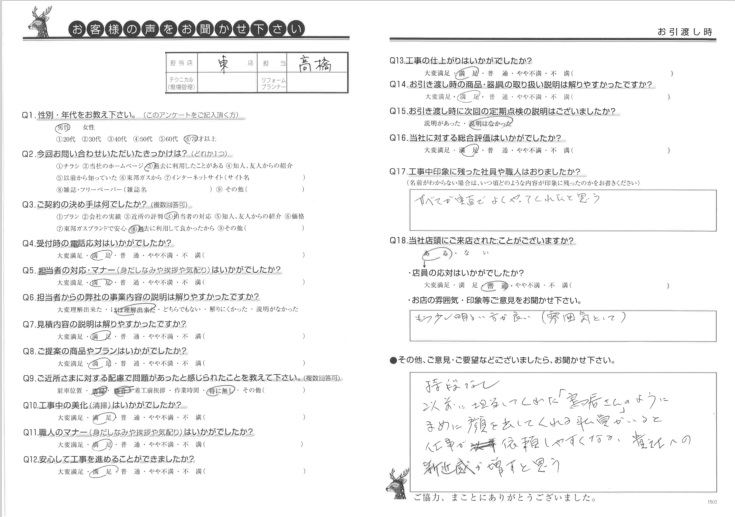 お客様の声をお聞かせ下さい
担当店 東 店 担当 高橋
テクニカル(現場管理) リフォームプランナー
Q1.性別・年代をお教え下さい。(このアンケートをご記入頂く方)
男性 女性
①20代 ②30代 ③40代 ④50代 ⑤60代 ⑥70才以上
Q2.今回お問い合わせいただいたきっかけは?(どれか1つ)
①チラシ ②当社のホームページ ③過去に利用したことがある ④知人、友人からの紹介
⑤以前から知っていた ⑥東邦ガスから ⑦インターネットサイト(サイト名 )
⑧雑誌・フリーペーパー(雑誌名 ) ⑨その他( )
Q3.ご契約の決め手は何でしたか?(複数回答可)
①プラン ②会社の実績 ③近所の評判 ④担当者の対応 ⑤知人、友人からの紹介 ⑥価格
⑦東邦ガスブランドで安心 ⑧過去に利用して良かったから ⑨その他( )
Q4.受付時の電話応対はいかがでしたか?
大変満足・満足・普通・やや不満・不満( )
Q5.担当者の対応・マナー(身だしなみや挨拶や気配り)はいかがでしたか?
大変満足・満足・普通・やや不満・不満( )
Q6.担当者からの弊社の事業内容の説明は解りやすかったですか?
大変理解出来た・ほぼ理解出来た・どちらでもない・解りにくかった・説明がなかった
Q7.見積内容の説明は解りやすかったですか?
大変満足・満足・普通・やや不満・不満( )
Q8.ご提案の商品やプランはいかがでしたか?
大変満足・満足・普通・やや不満・不満( )
Q9.ご近所さまに対する配慮で問題があったと感じられたことを教えて下さい。(複数回答可)
駐車位置・ ・ ・着工前挨拶・作業時間・特に無し・その他( )
Q10.工事中の美化(清掃)はいかがでしたか?
大変満足・満足・普通・やや不満・不満( )
Q11.職人のマナー(身だしなみや挨拶や気配り)はいかがでしたか?
大変満足・満足・普通・やや不満・不満( )
Q12.安心して工事を進めることができましたか?
大変満足・満足・普通・やや不満・不満( )
お引渡し時
Q13.工事の仕上がりはいかがでしたか?
大変満足・満足・普通・やや不満・不満( )
Q14.お引き渡し時の商品・器具の取り扱い説明は解りやすかったですか?
大変満足・満足・普通・やや不満・不満( )
Q15.お引き渡し時に次回の定期点検の説明はございましたか?
説明があった・説明はなかった
Q16.当社に対する総合評価はいかがでしたか?
大変満足・満足・普通・やや不満・不満( )
Q17.工事中印象に残った社員や職人はおりましたか?
(名前がわからない場合は、いつ頃どのような内容が印象に残ったのかをお書きください)
すべてが よくやってくれたと思う
Q18.当社店頭にご来店されたことがございますか?
ある・ない
・店員の応対はいかがでしたか?
大変満足・満足・普通・やや不満・不満( )
・お店の雰囲気・印象等ご意見をお聞かせ下さい。
もう少し明るい方が良い(雰囲気として)
●その他、ご意見・ご要望などございましたら、お聞かせ下さい。
特段なし
以前に担当してくれた「 さん」のように
まめに顔を出してくれる社員がいると
仕事が 依頼しやすくなる、貴社への
親近感が増すと思う
ご協力、まことにありがとうございました。